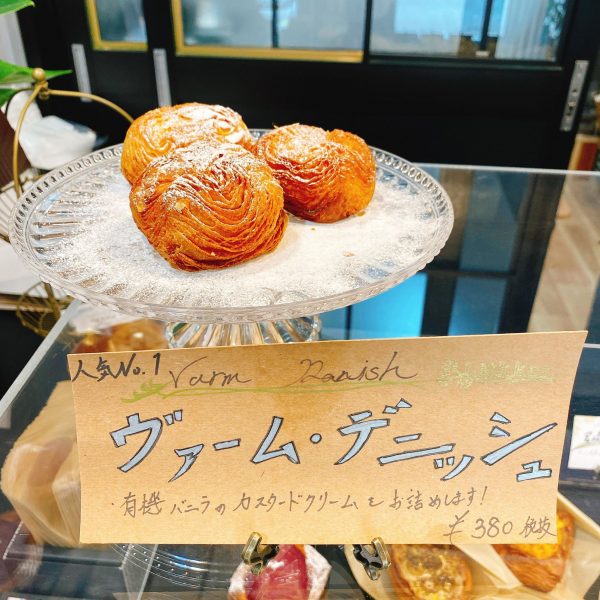 人気No.1 Varm Danish
ヴァーム・デニッシュ
・有機バニラのカスタードクリームをお詰めします!
¥380 税抜